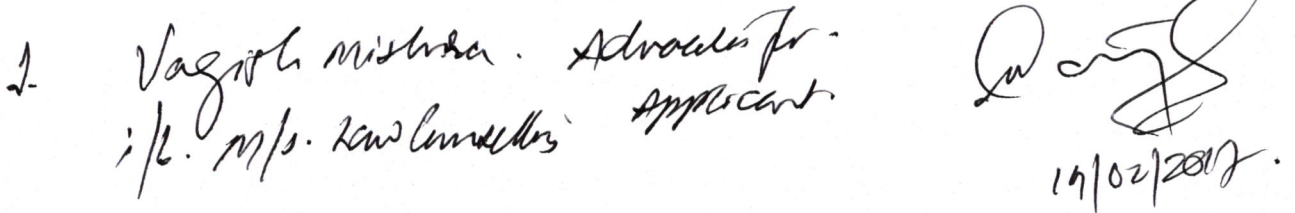 1. Vagish Mishra. Advocate for.
Applicant.
i/b. M/s. Law Counsellors